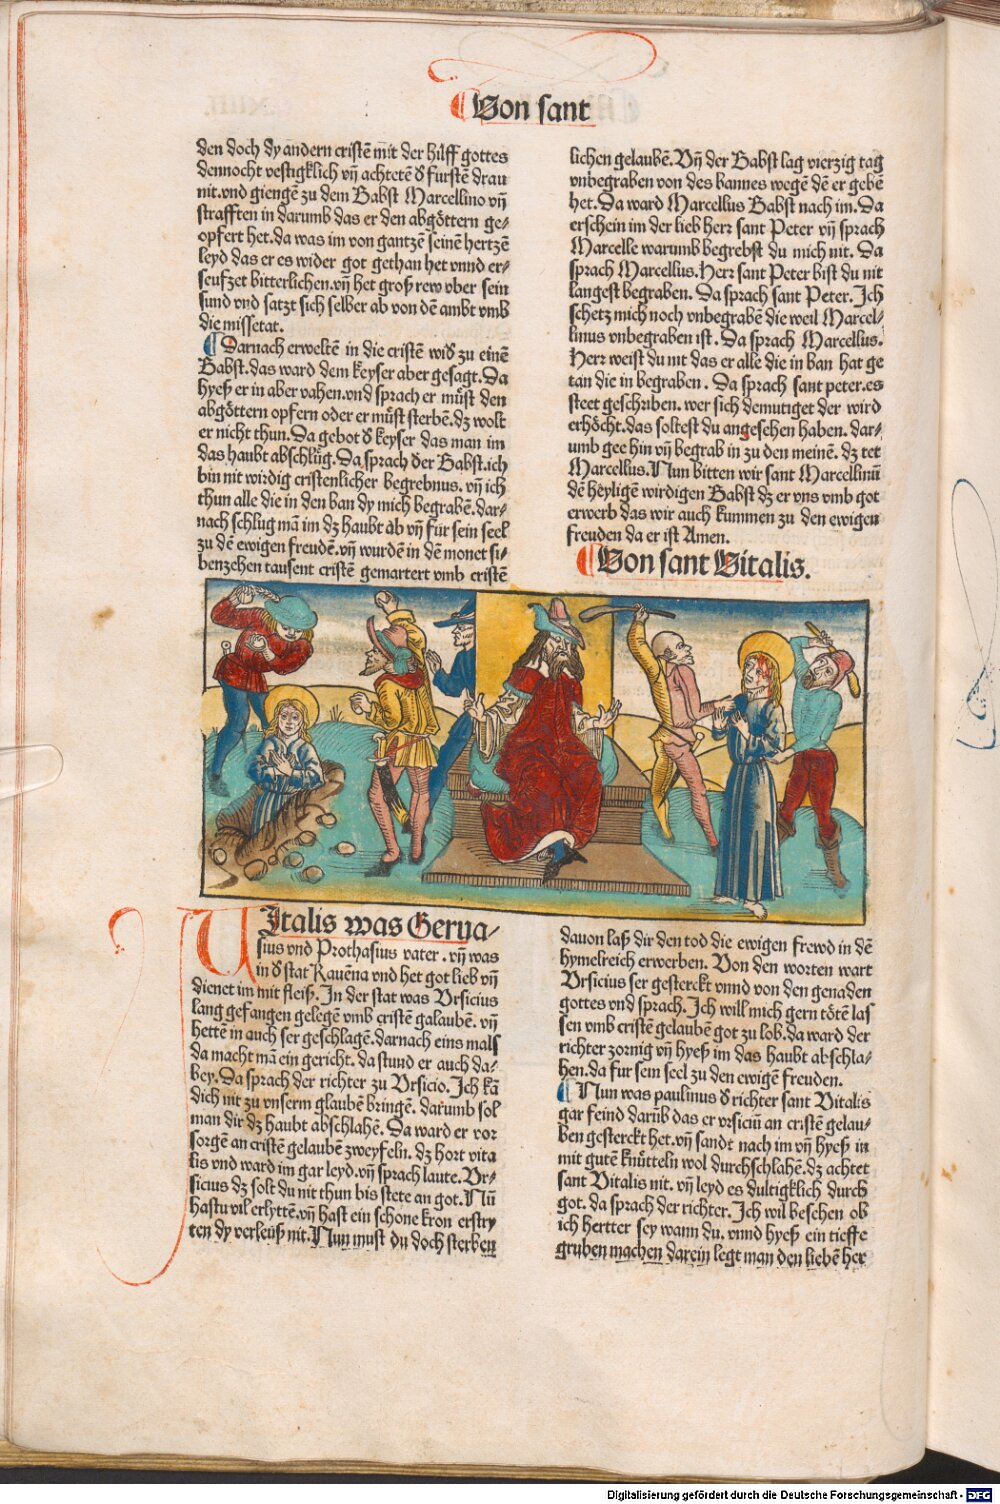 Von sant
den doch dy andern cristē mit der hilff gottes
dennocht vestigklich vñ achtetē d̕ furstē drau
nit.vnd giengē zu dem Babst Marcellino vñ
strafften in darumb das er den abgöttern ge-
opfert het.da was im von gantzē seinē hertzē
leyd das er es wider got gethan het vnnd er-
seufzet bitterlichen.vñ het groß rew vber sein
sund vnd satzt sich selber ab von dē ambt vmb
die missetat.
Darnach erweltē in die cristē wid̕ zu einē
Babst.das ward dem keyser aber gesagt.Da
hyeß er in aber vahen.vnd sprach er müst den
abgöttern opfern oder er müst sterbē.dz wolt
er nicht thun.Da gebot d̕ keyser das man im
das haubt abschlüg.Da sprach der Babst.ich
bin nit wirdig cristenlicher begrebnus.vñ ich
thun alle die in den ban dy mich begrabē.dar-
nach schlug mā im dz haubt ab vñ fur sein seel
zu dē ewigen freudē.vñ wurdē in dē monet si-
benzehen tausent cristē gemartert vmb cristē
lichen gelaubē.Vñ der Babst lag vierzig tag
vnbegraben von des bannes wegē dē er gebē
het.Da ward Marcellus Babst nach im.Da
erschein im der lieb herr sant Peter vñ sprach
Marcelle warumb begrebst du mich nit. Da
sprach Marcellus.Herr sant Peter bist du nit
langest begraben. Da sprach sant Peter.Ich
schetz mich noch vnbegrabē die weil Marcel-
linus vnbegraben ist. Da sprach Marcellus.
Herr weist du nit das er alle die in ban hat ge
tan die in begraben. Da sprach sant peter.es
steet geschriben.wer sich demutiget der wird
erhöcht.das soltest du angesehen haben. dar-
umb gee hin vñ begrab in zu den meinē. dz tet
Marcellus.Nun bitten wir sant Marcellinū
dē heyligē wirdigen Babst dz er vns vmb got
erwerb das wir auch kummen zu den ewigen
freuden da er ist Amen.
Von sant Vitalis.
VItalis was Gerua-
sius vnd Prothasius vater. vñ was
in d̕ stat Rauēna vnd het got lieb vñ
dienet im mit fleiß. In der stat was Vrsicius
lang gefangen gelegē vmb cristē galaubē. vñ
hettē in auch ser geschlagē.darnach eins mals
da macht mā ein gericht. da stuud er auch da-
bey.Da sprach der richter zu Vrsicio.Ich kā
dich nit zu vnserm glaubē bringē. darumb sol
man dir dz haubt abschlahē.Da ward er vor
sorgē an cristē gelaubē zweyfeln. dz hort vita
lis vnd ward im gar leyd.vñ sprach laute.Vr-
sicius dz solt du nit thun bis stete an got.Nū
hastu vil erlyttē.vñ hast ein schone kron erstry
ten dy verleüß nit.Nun must du doch sterben
dauon laß dir den tod die ewigen frewd in dē
hymelreich erwerben. Von den worten wart
Vrsicius ser gesterckt vnnd von den genaden
gottes vnd sprach.Ich will mich gern tötē las
sen vmb cristē gelaubē got zu lob.da ward der
richter zornig vñ hyeß im das haubt abschla-
hen.da fur sein seel zu den ewigē freuden.
Nun was paulinus d̕ richter sant Vitalis
gar feind darūb das er vrsiciū an cristē gelau-
ben gesterckt het.vñ sandt nach im vñ hyeß in
mit gutē knütteln wol durchschlahē.dz achtet
sant Vitalis nit. vñ leyd es dultigklich durch
got. da sprach der richter.Ich wil besehen ob
ich hertter sey wann du. vnnd hyeß ein tieffe
gruben machen darein legt man den liebē her
Digitalisierung gefördert durch die Deutsche Forschungsgemeinschaft - DFG